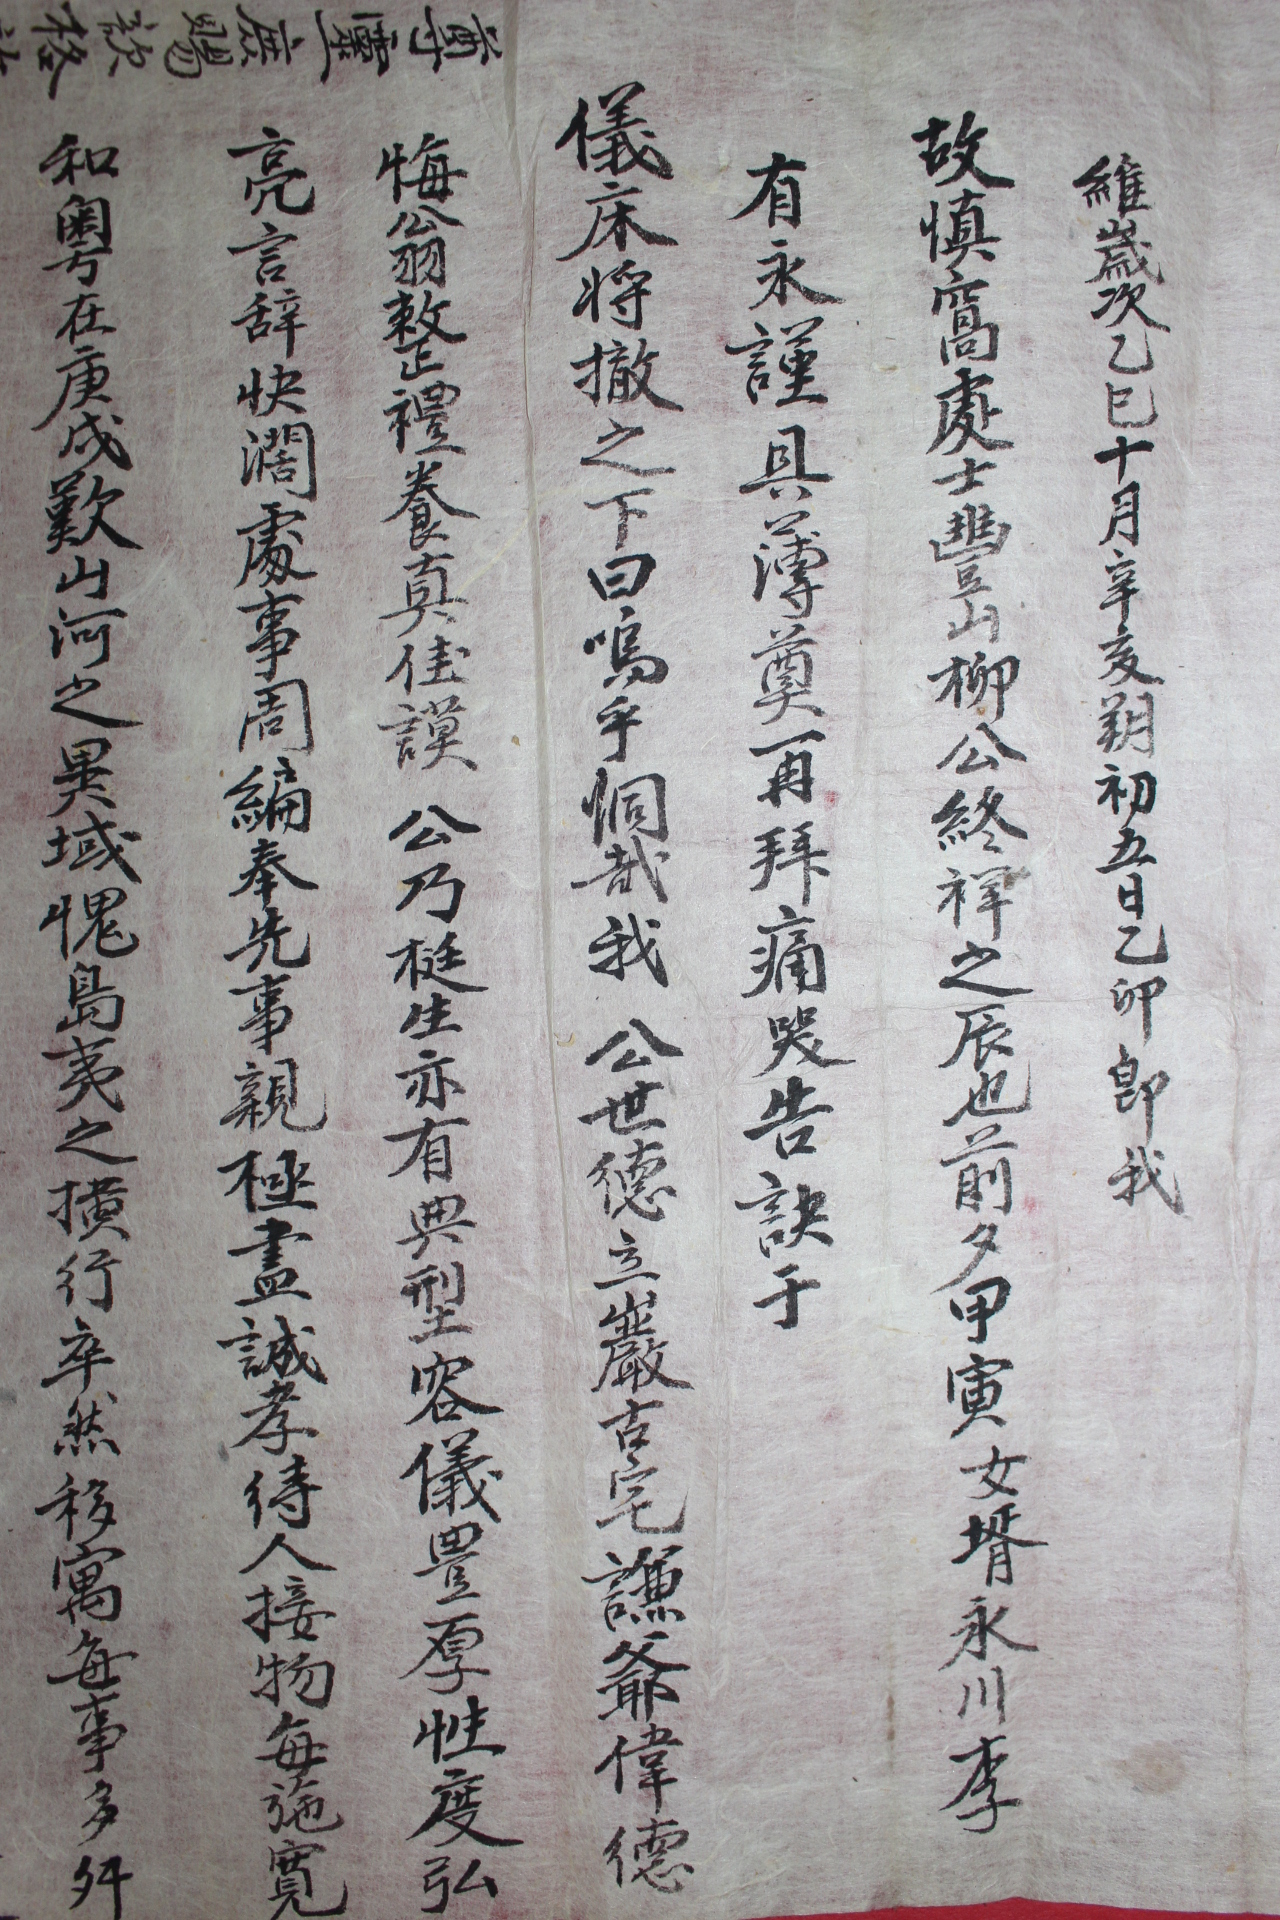 維歲次乙巳十月辛亥朔初五日乙卯卽我
故愼窩處士豐山柳公終祥之辰也前夕甲寅女壻永川李
有永謹具薄奠再拜痛哭告訣于
儀床將撤之下曰嗚乎恫哉我 公世德立巖古宅謙爺偉德
悔翁整禮養真佳謨 公乃挺生亦有典型容儀豊厚性度弘
亮言辞快濶處事周編奉先事親極盡誠孝待人接物每施寬
和粤在庚戌歎山河之異域愧島夷之橫行卒然移寓每事多舛
尊靈庶賜歆格